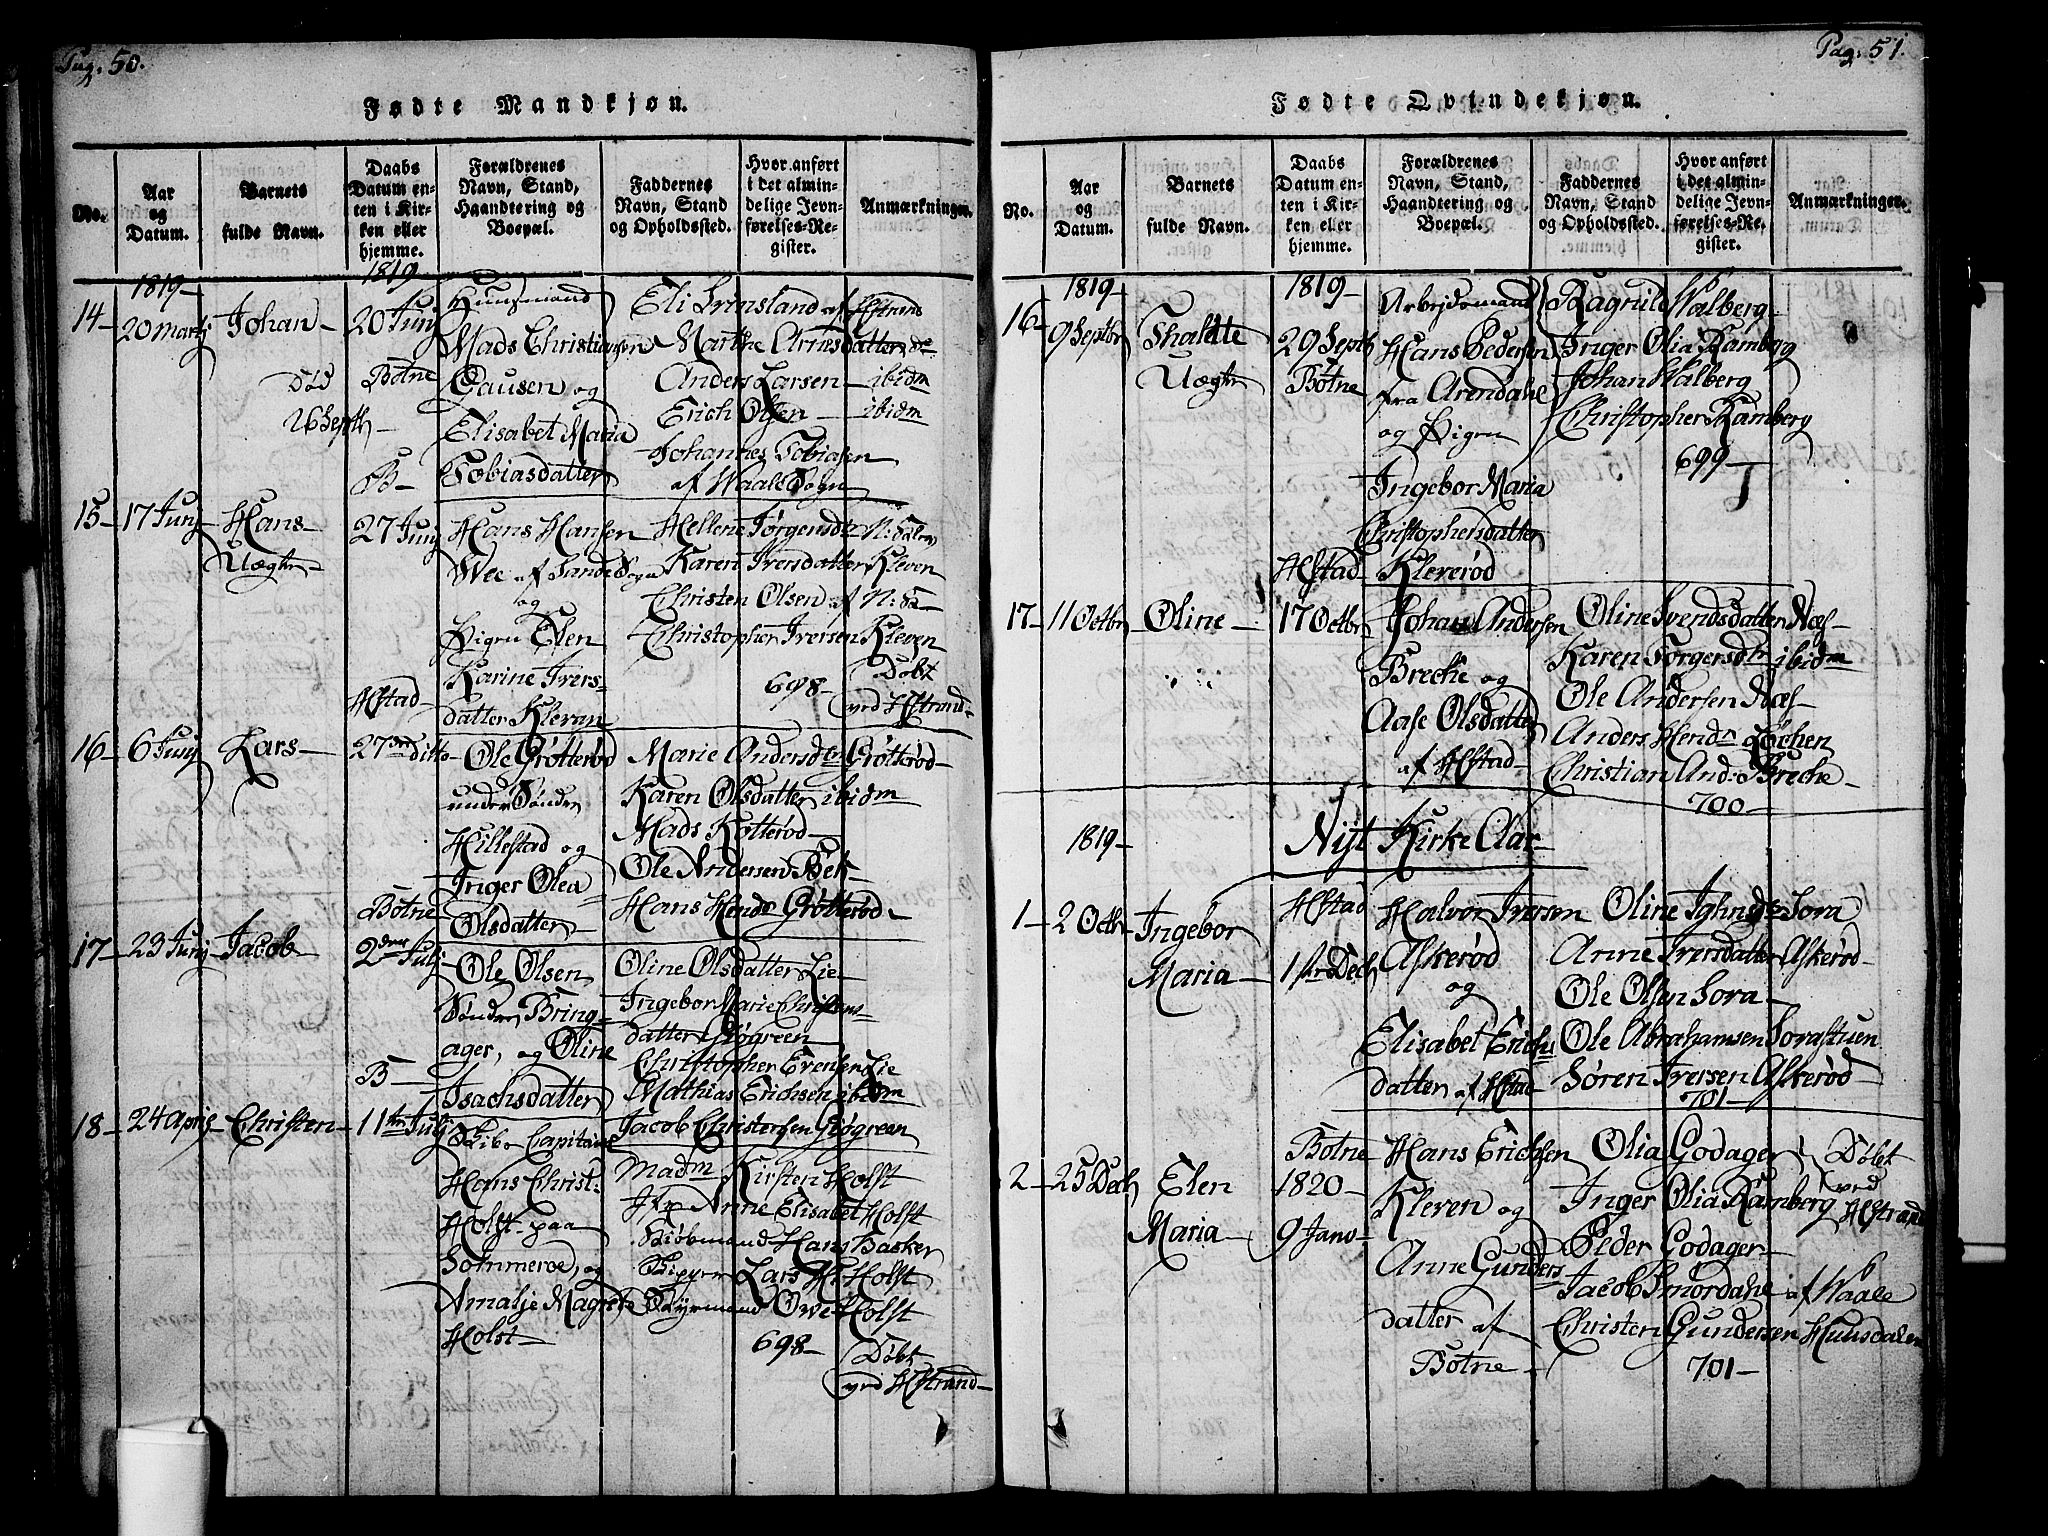 Pag. 50.
Fødte Mandkjøn.
No.
Aar og Datum.
Barnets fulde Navn.
Daabs Datum enten i Kirken eller hjemme.
Forældrenes Navn, Stand, Haandtering og Boepæl.
Faddernes Navn, Stand og Opholdssted.
Hvor anført i det almindelige Jevnførelses-Register.
Anmærkninger.
1819
14 20 Martj Johan
1819
20 Junj
Botne
Død
26 Septb
B
Huusmand
Mads Christiansen
Gausen og
Elisabet Maria
Tobiasdatter
Marthe Arnesdatter
Anders Larsen ibidm
Erich Olsen ibidm
Johannes Tobiasen
af Waale Sogn
15 17 Junj Hans
Uægte
27 Junj
Hfstad
Hans Hansen
Wee af Sande Sogn
og
Pigen Elen
Karine Ivers-
datter Kleven
Hellene Jørgensdtr
Karen Iversdatter Kleven
Christen Olsen af
Christopher Iversen Kleven
698
Døbt
ved Hfstrand
16 6 Junj Lars
27de ditto
Botne
Ole Grøtterød
under Søndre
Hillestad og
Inger Olea
Olsdatter
Marie Andersdtr Grøtterød
Karen Olsdatter ibidm
Mads Kotterød
Ole Andersen Bek
Hans Hends Grøtterød
17 23 Junj Jacob
2den Julj
B
Ole Olsen
Søndre Bring-
ager, og Oline
Isachsdatter
Oline Olsdatter Lie
Ingebor Marie Christens-
datter Grøgreen
Christopher Evensen Lie
Mathias Erichsen ibidm
18 24 Aprij Christen
11te Julj
Skibs Capitain
Hans Christ:
Holst paa
Sommeroe, og
Amalje Magrete
Holst
Jacob Christensen Grøgreen
Madm Kirsten Holst
Jfr Anne Elisabet Holst
Kiøbmand Hans Basker
Lars H: Holst
Styrmand Owe Holst
698
Døbt
ved Hfstrand
Pag. 51.
Fødte Qvindekjøn.
No.
Aar og Datum.
Barnets fulde Navn.
Daabs Datum enten i Kirken eller hjemme.
Forældrenes Navn, Stand, Haandtering og Boepæl.
Faddernes Navn, Stand og Opholdssted.
Hvor anført i det almindelige Jevnførelses-Register.
Anmærkninger.
1819
16 9 Septbr
Uægte
1819
29 Septb
Botne
Hfstad
Arbejdsmand
Hans Pedersen
fra Arendahl
og Pigen
Ingebor Maria
Christophersdatter
Kleverød
Ragnild Walberg
Inger Olia Ramberg
Johan Walberg
Christopher Ramberg
699
17 11 Octbr Oline
17 Octbr
Johan Andersen
Breche og
Aase Olsdatter
af Hfstad
Oline Svendsdatter Næs
Karen Torgersdtr ibidm
Ole Andersen Næs
Anders Hendr Løchen
Christian And: Breche
700
1819
Nyt Kirke Aar
1 2 Octb Ingebor
Maria
Hfstad
1ste Decb
Halvor Iversen
Askerød
og
Elisabet Erichs
datter af Hfstad
Anne Iversdatter Askerød
Ole Olsen Sora
Ole Abrahamsen Sorastuen
Søren Iversen Askerød
701
2 25 Decb Elen
Maria
Botne
1820
9 Janv
Hans Erichsen
Kleven og
Anne Gunders
datter af
Botne
Olia Godager
Inger Olia Ramberg
Peder Godager
Jacob Smordahl af Waale
Christen Gundersen Huusdalen
701
Døbt
ved
Hfstrand